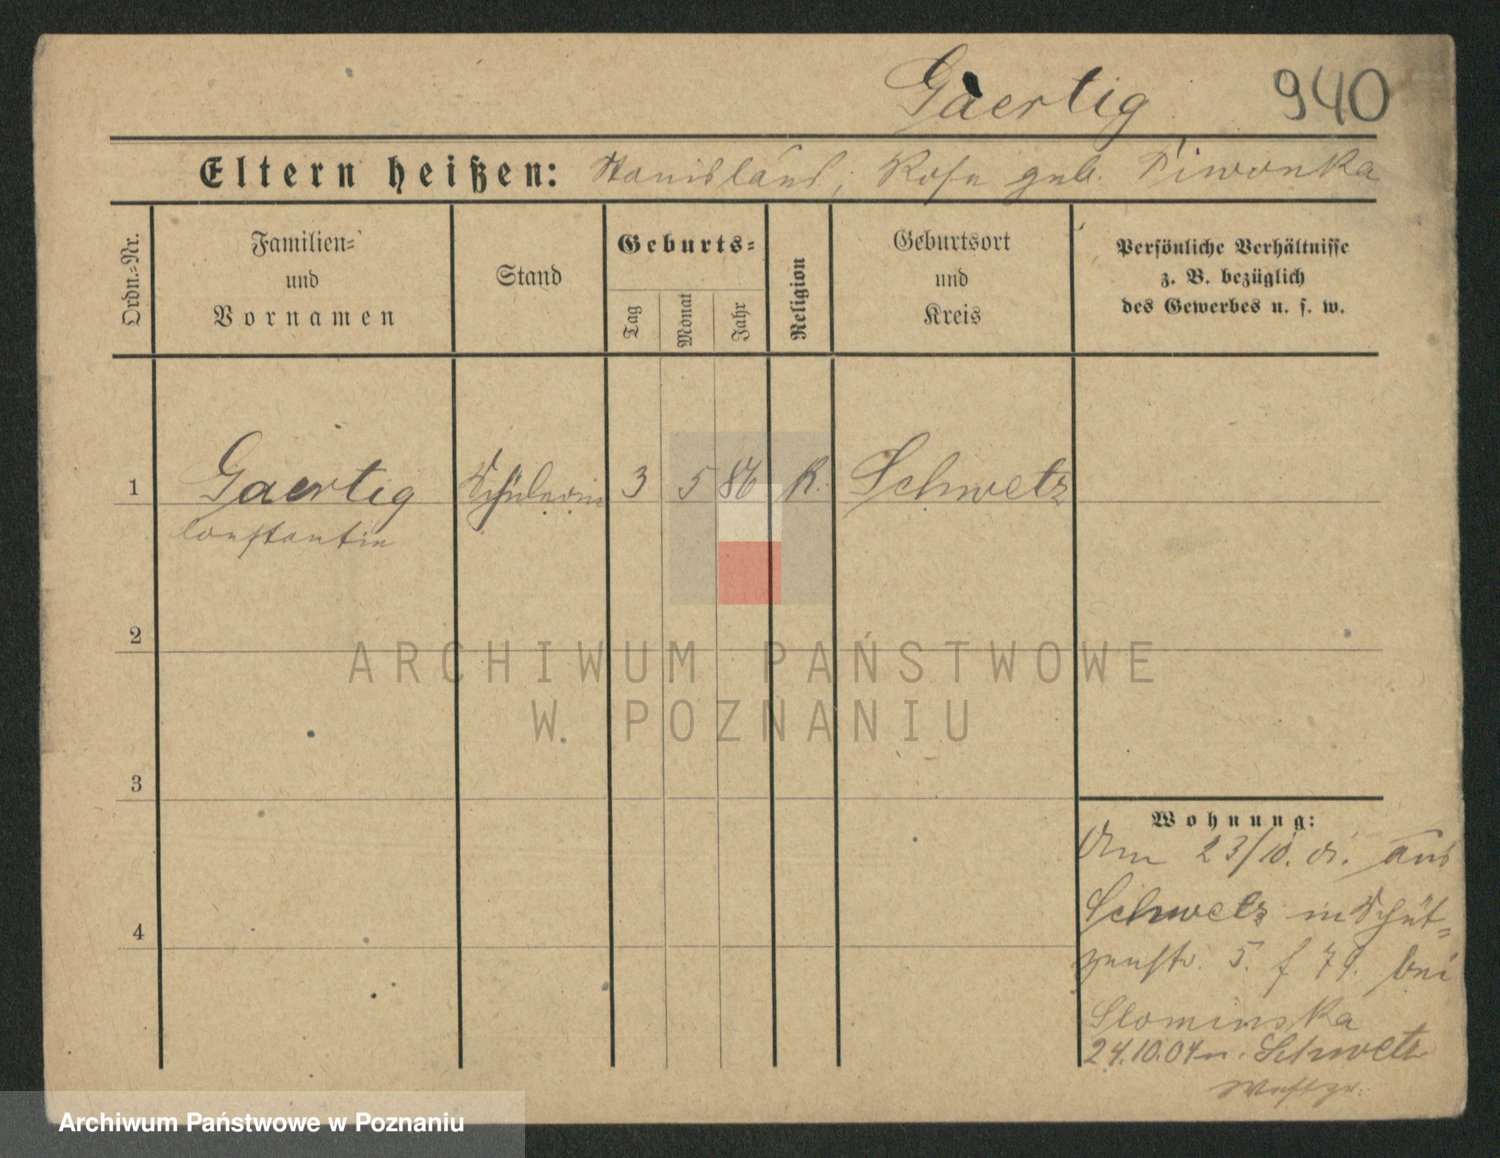 Gaertig 940
Eltern heißen: Stanislaus, Rosa geb. Piwonka
Ordn.=Nr.
Familien=
und
Vornamen
Stand
Geburts=
Tag
Monat
Jahr
Religion
Geburtsort
und
Kreis
Persönliche Verhältnisse
z. B. bezüglich
des Gewerbes u. s. w.
1 Gaertig Schülerin 3 5 86 K. Schwetz
Constantin
2
3
4
Wohnung:
Am 23/10. aus
Schwetz in Schüt=
zenstr. 5. 79. bei
Slominska
24.10.04 n. Schwetz
Westpr.
ARCHIWUM PAŃSTWOWE
W POZNANIU
Archiwum Państwowe w Poznaniu